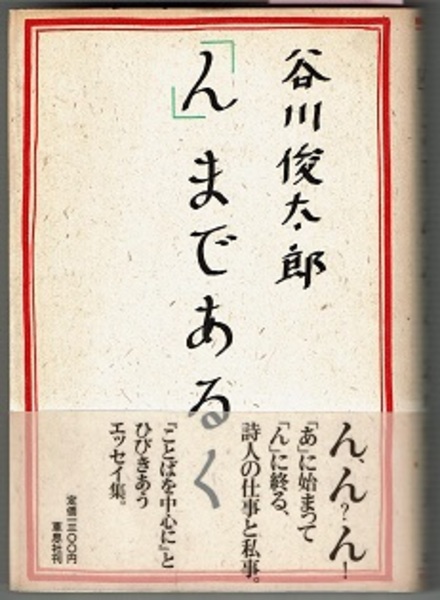 谷川俊太郎
「ん」まであるく
ん、ん?ん!
「あ」に始まって
「ん」に終る、
詩人の仕事と私事。
『ことばを中心に』と
ひびきあう
エッセイ集。
定価一三〇〇円
草思社刊